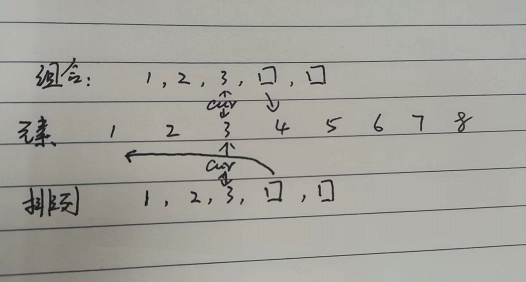 组合: 1, 2, 3, □, □
cur
元素 1 2 3 4 5 6 7 8
cur
排列 1, 2, 3, □, □